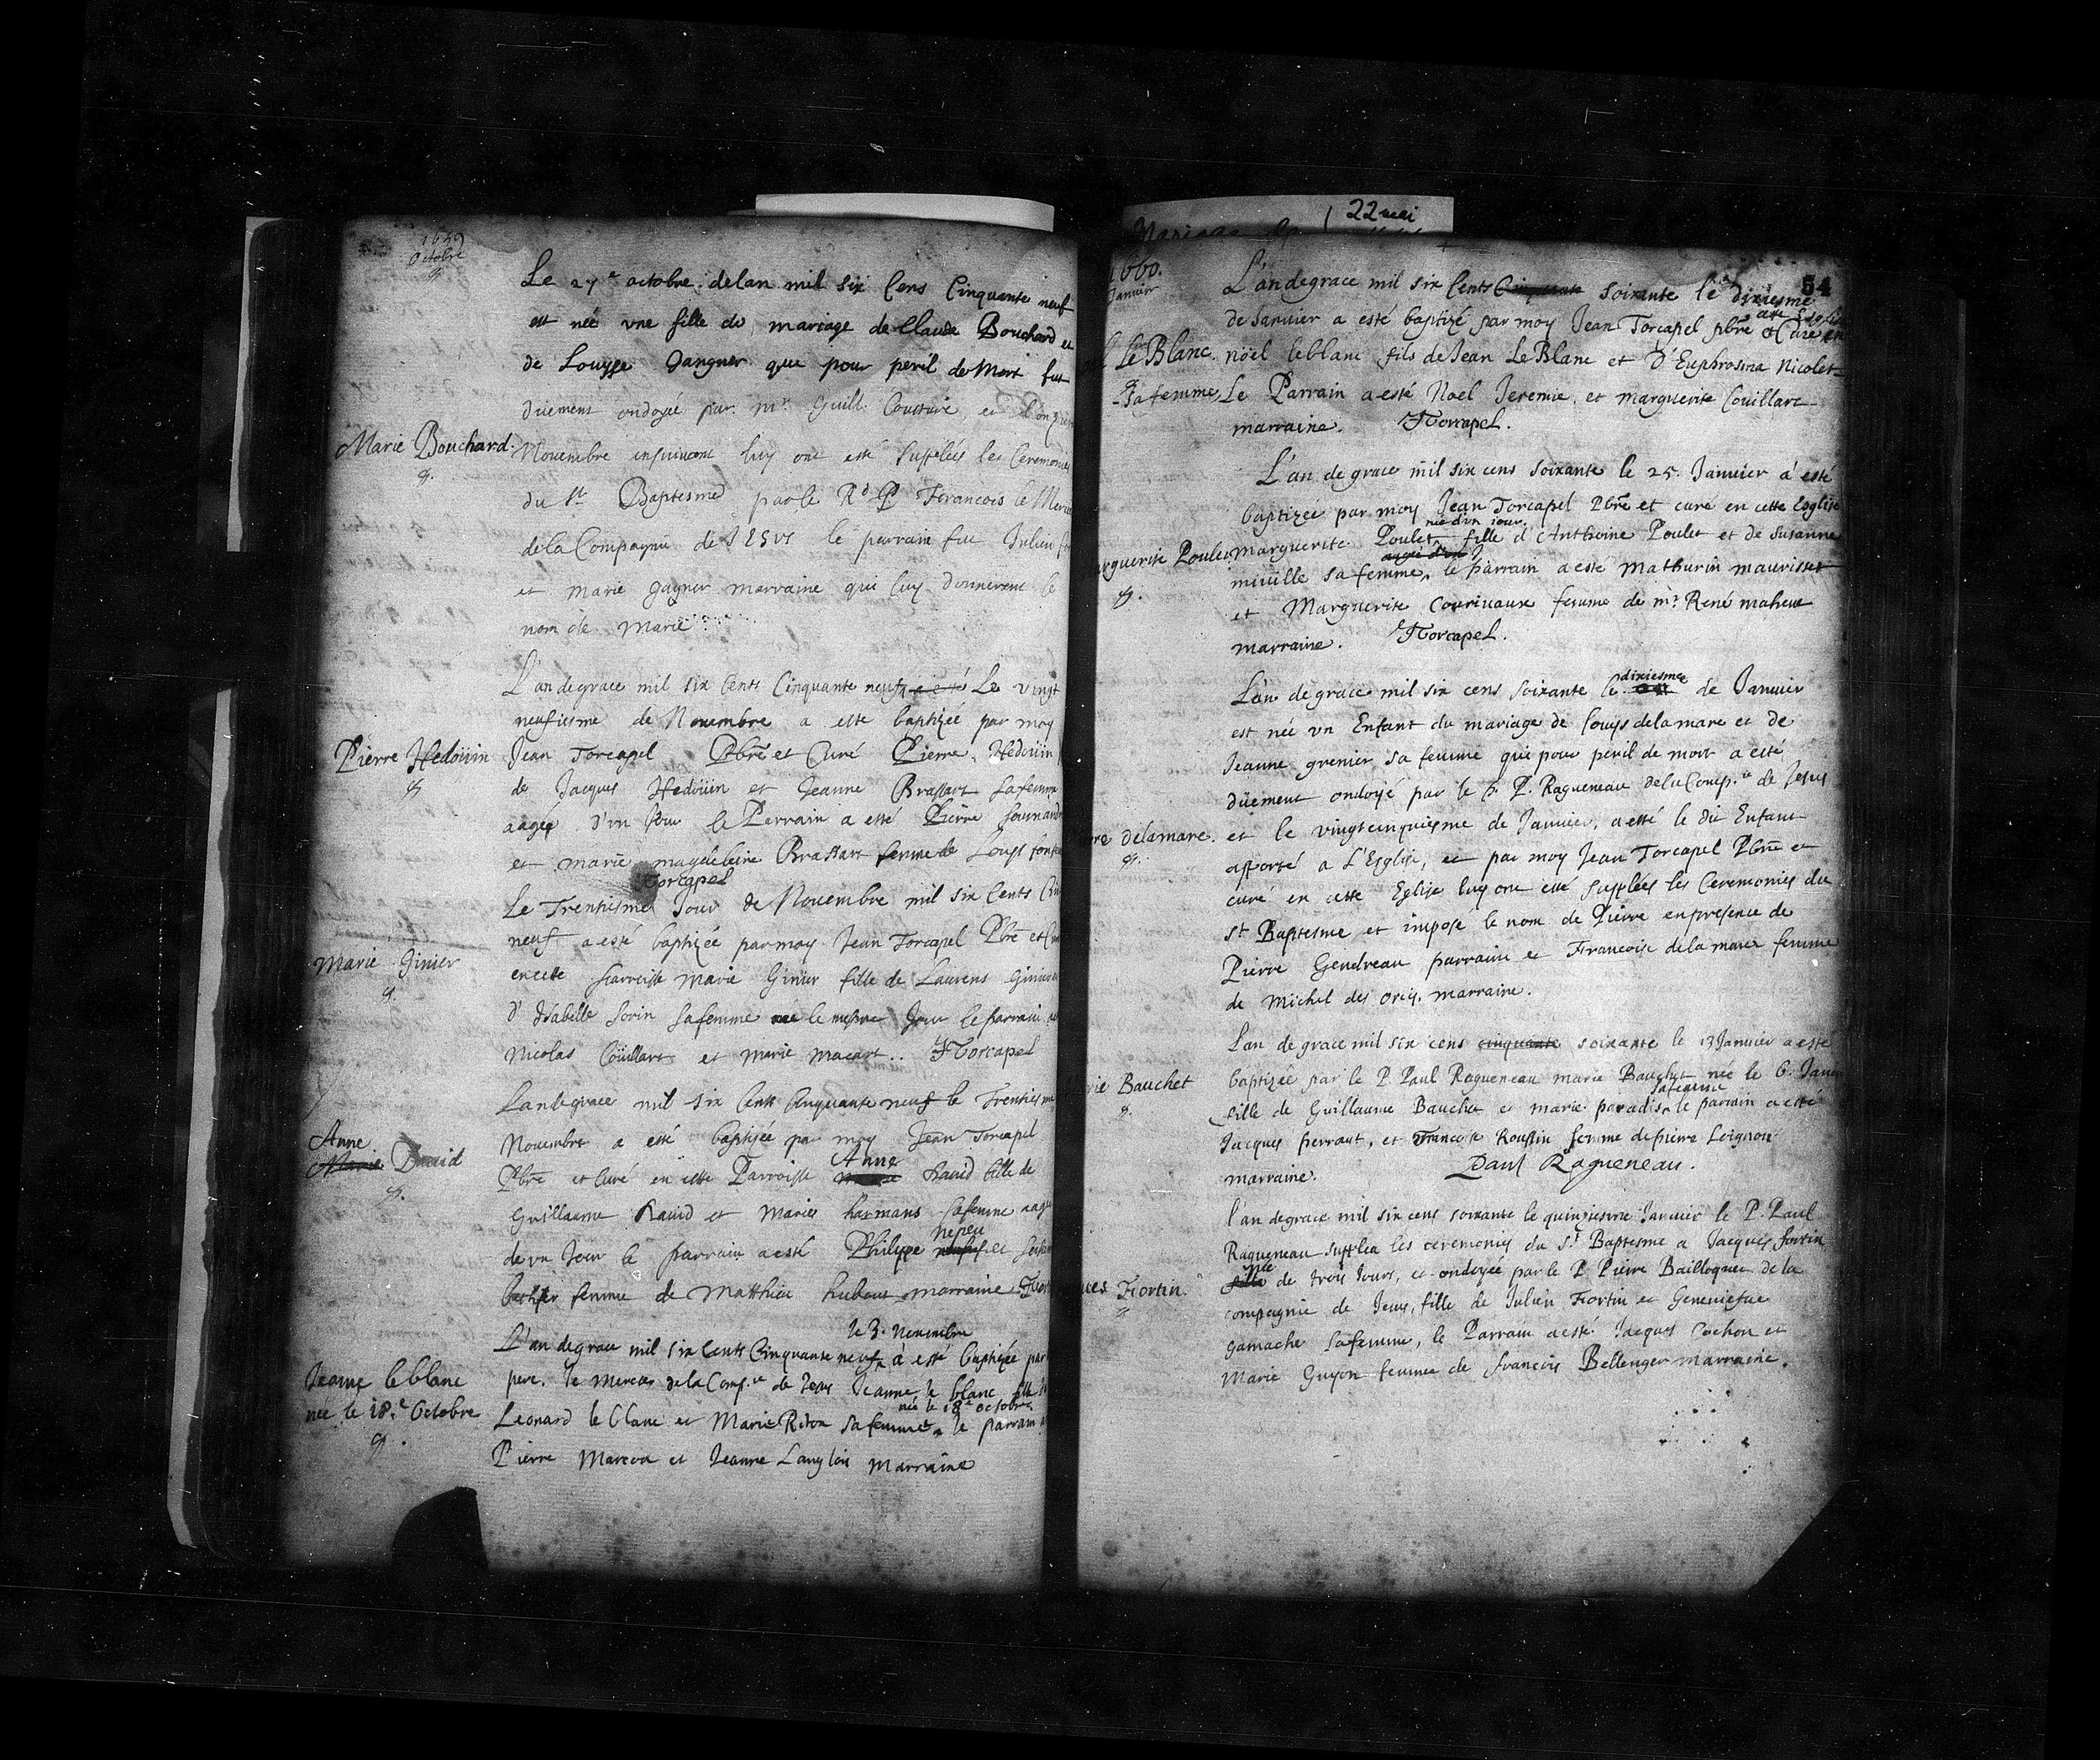 1659
Octobre
Le 27e octobre delan mil six Cens Cinquante neuf
est née vne fille du mariage de Claude Bouchard et
de Louyse Gangner que pour peril de Mort fut
düement ondoyée par mr Guill. Cousture, et
Marie Bouchard.
Novembre insuivant luy ont esté supplées les Ceremonies
du St Baptesme par le Rd P Francois le Mercie
de la Compagnie de IESVS le parrain fut Julien
et marie gagner marraine qui luy donnerent le
nom de marie
L'an de grace mil six Cents Cinquante neuf a esté Le vingt
neufiesme de Novembre a esté baptizée par moy
Pierre Hedoüin
Jean Torcapel Pbre et Curé Pierre Hedoüin
de Jacques Hedoüin et Jeanne Brassart sa femme
aagée d'vn Jour le Parrain a esté Pierre
et marie magdeleine Brassart femme de Louys
Torcapel
Le Trentisme Jour de Novembre mil six Cents
neuf a esté baptizée par moy Jean Torcapel Pbre et
Marie Ginier
en cete parroisse Marie Ginier fille de Laurens Ginier
d'Isabelle Sorin sa femme née le mesme Jour le parrain
Nicolas Coüillart et marie macart.. Torcapel
L'an de grace mil six Cents Cinquante neuf le Trentiesme
Novembre a esté baptizée par moy Jean Torcapel
Anne
Marie David
Pbre et Curé en cette Parroisse Marie Anne David fille de
Guillaume David et Marie harmans sa femme aagée
de vn Jour le parrain a esté Philippe Nepveu et
femme de Matthieu hubout marraine
L'an de grace mil six Cents Cinquante neuf le 3. Novembre à esté baptizée par
Jeanne le blanc
née le 18.e Octobre
pere. le Mercier de la Comp.ie de Jesus Jeanne le blanc fille
Leonard le blanc et Marie Riton sa femme née le 18e octobre. le parrain
Pierre Marcoa et Jeanne Langlois marraine
22 mai
Mariage
54
1660.
Janvier
L'an de grace mil six Cents Cinquante soixante le dixiesme
de Janvier a esté baptizé par moy Jean Torcapel pbre et Curé en cette Eglise
Le Blanc.
nöel leblanc fils de Jean Le Blanc et d'Euphrosina Nicolet
sa femme, Le Parrain a esté Noel Jeremie, et marguerite Couillart
marraine. Torcapel.
L'an de grace mil six cens soixante le 25. Janvier à esté
baptizée par moy Jean Torcapel Pbre et curé en cette Eglise
Marguerite Poulet
marguerite Poulet née d'vn jour. fille d'Anthoine Poulet et de Susanne
miville sa femme aagée d'vn J, le parrain a esté mathurin maurisset
et Marguerite Corrivaux femme de mr. René maheux
marraine. Torcapel.
L'an de grace mil six cens soixante le dixiesme de Janvier
est née vn Enfant du mariage de Louys delamare et de
Jeanne grenier sa femme que pour peril de mort a esté
düement ondoyé par le R. P. Ragueneau de la Comp.ie de Jesus
delamare.
et le vingtcinquiesme de Janvier, a esté le dit Enfant
apporté a L'Eglise, et par moy Jean Torcapel Pbre et
curé en cette Eglise luy ont esté supplées les Ceremonies du
St Baptesme et imposé le nom de Pierre en presence de
Pierre Gendreau parrain et Francoise de la mare femme
de Michel des orcy. marraine.
L'an de grace mil six cens cinquante soixante le 13 Janvier a esté
Marie Bauchet
baptizée par le P Paul Ragueneau marie Bauchet née le 6. Janvi
fille de Guillaume Bauchet et marie paradis, sa femme le parrain a esté
Jacques perraut, et Francoise Roussin femme de pierre Loignon
marraine. Paul Ragueneau.
l'an de grace mil six cens soixante le quinziesme Janvier le P. Paul
Ragueneau supplea les ceremonies du St. Baptesme a Jacques fortin
Jacques Fortin.
fille née de trois Jours, et ondoyée par le P. Pierre Bailloquet de la
compagnie de Jesus, fille de Julien Fortin et Geneviefve
gamache sa femme, le Parrain a esté Jacques Cochon et
Marie Guyon femme de francois Bellenger marraine.